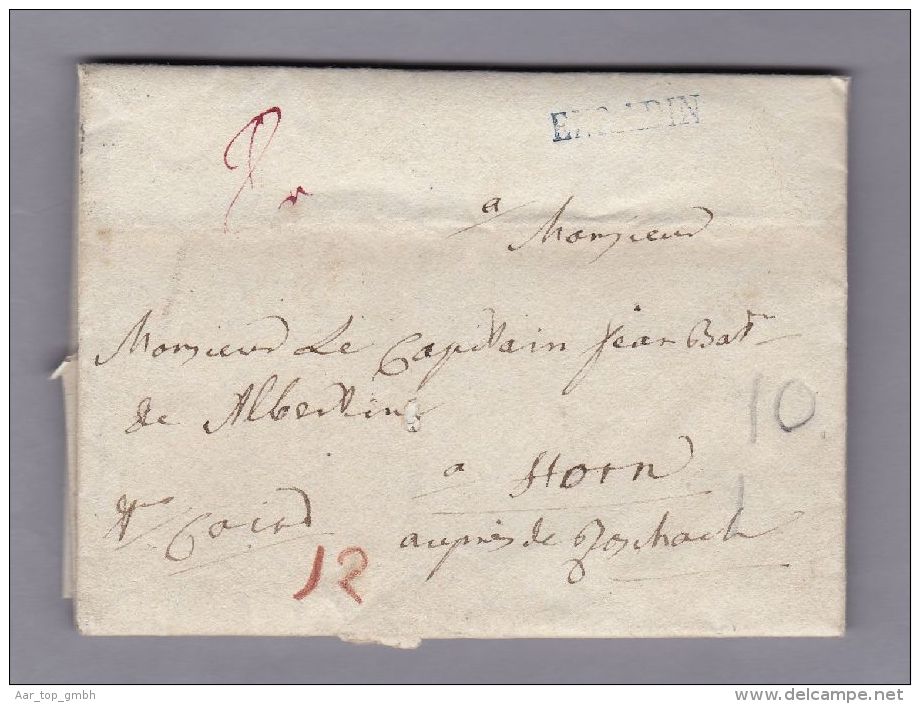 ENGADIN
a
Monsieur
Monsieur Le Capitain Jean Bat.
de Albertini
a Horn
10
Coird
auprès de Roschach
12
Aar_top_gmbh
www.delcampe.net